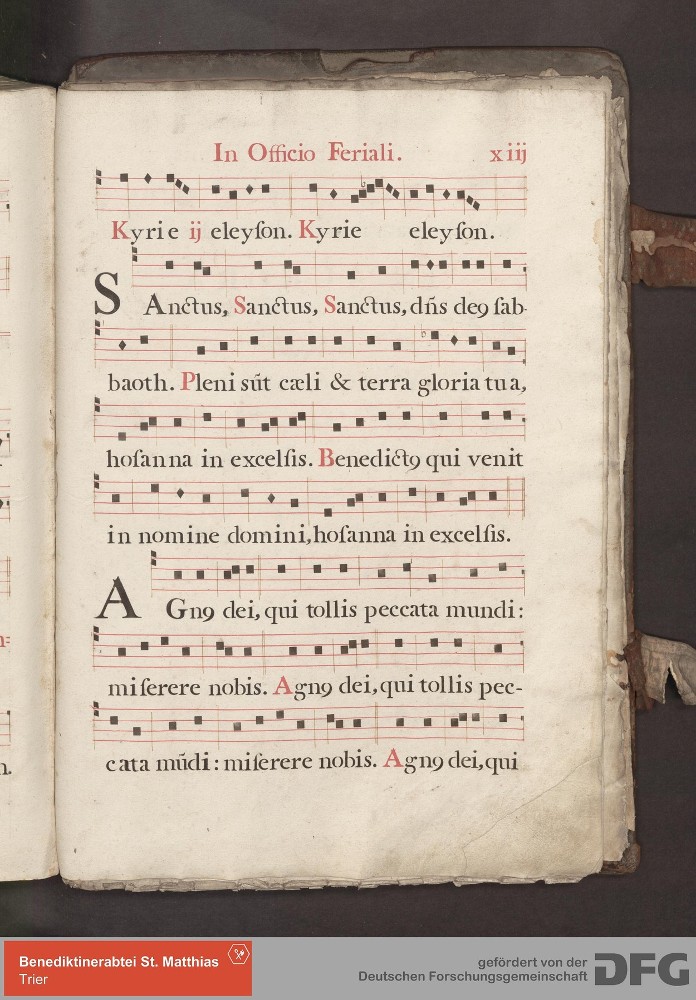 In Officio Feriali. xiij
Kyrie ij eleyſon. Kyrie eleyſon.
SAnctus, Sanctus, Sanctus, dn̄s deꝯ ſab-
baoth. Pleni sūt cæli & terra gloria tua,
hoſanna in excelſis. Benedictꝯ qui venit
in nomine domini, hoſanna in excelſis.
AGnꝯ dei, qui tollis peccata mundi:
miſerere nobis. Agnꝯ dei, qui tollis pec-
cata mūdi: miſerere nobis. Agnꝯ dei, qui
Benediktinerabtei St. Matthias
Trier
gefördert von der
Deutschen Forschungsgemeinschaft
DFG